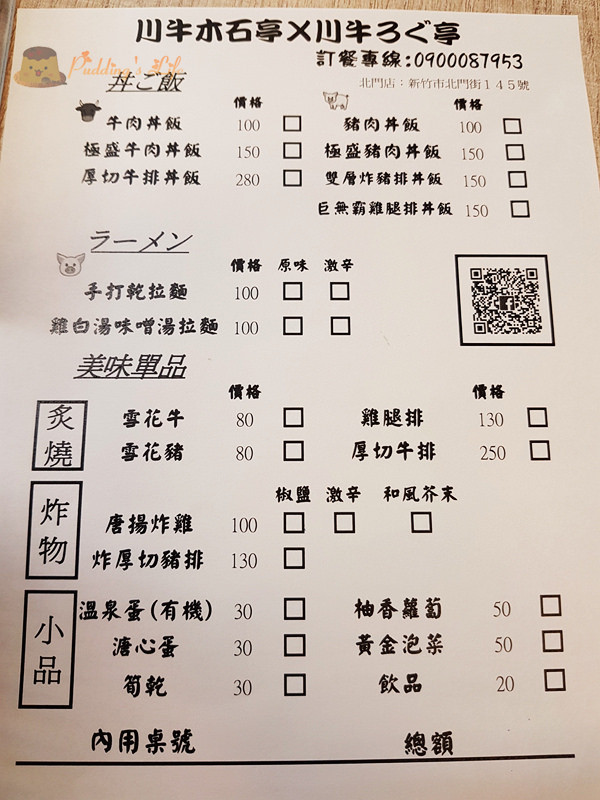 川牛木石亭X川牛ろぐ亭
訂餐專線:0900087953
Pudding's Life
丼ご飯
北門店：新竹市北門街１４５號
價格 價格
牛肉丼飯 100 豬肉丼飯 100
極盛牛肉丼飯 150 極盛豬肉丼飯 150
厚切牛排丼飯 280 雙層炸豬排丼飯 150
巨無霸雞腿排丼飯 150
ラーメン
價格 原味 激辛
手打乾拉麵 100
雞白湯味噌湯拉麵 100
美味單品
價格 價格
炙燒
雪花牛 80 雞腿排 130
雪花豬 80 厚切牛排 250
炸物
椒鹽 激辛 和風芥末
唐揚炸雞 100
炸厚切豬排 130
小品
溫泉蛋(有機) 30 柚香蘿蔔 50
溏心蛋 30 黃金泡菜 50
筍乾 30 飲品 20
內用桌號 總額